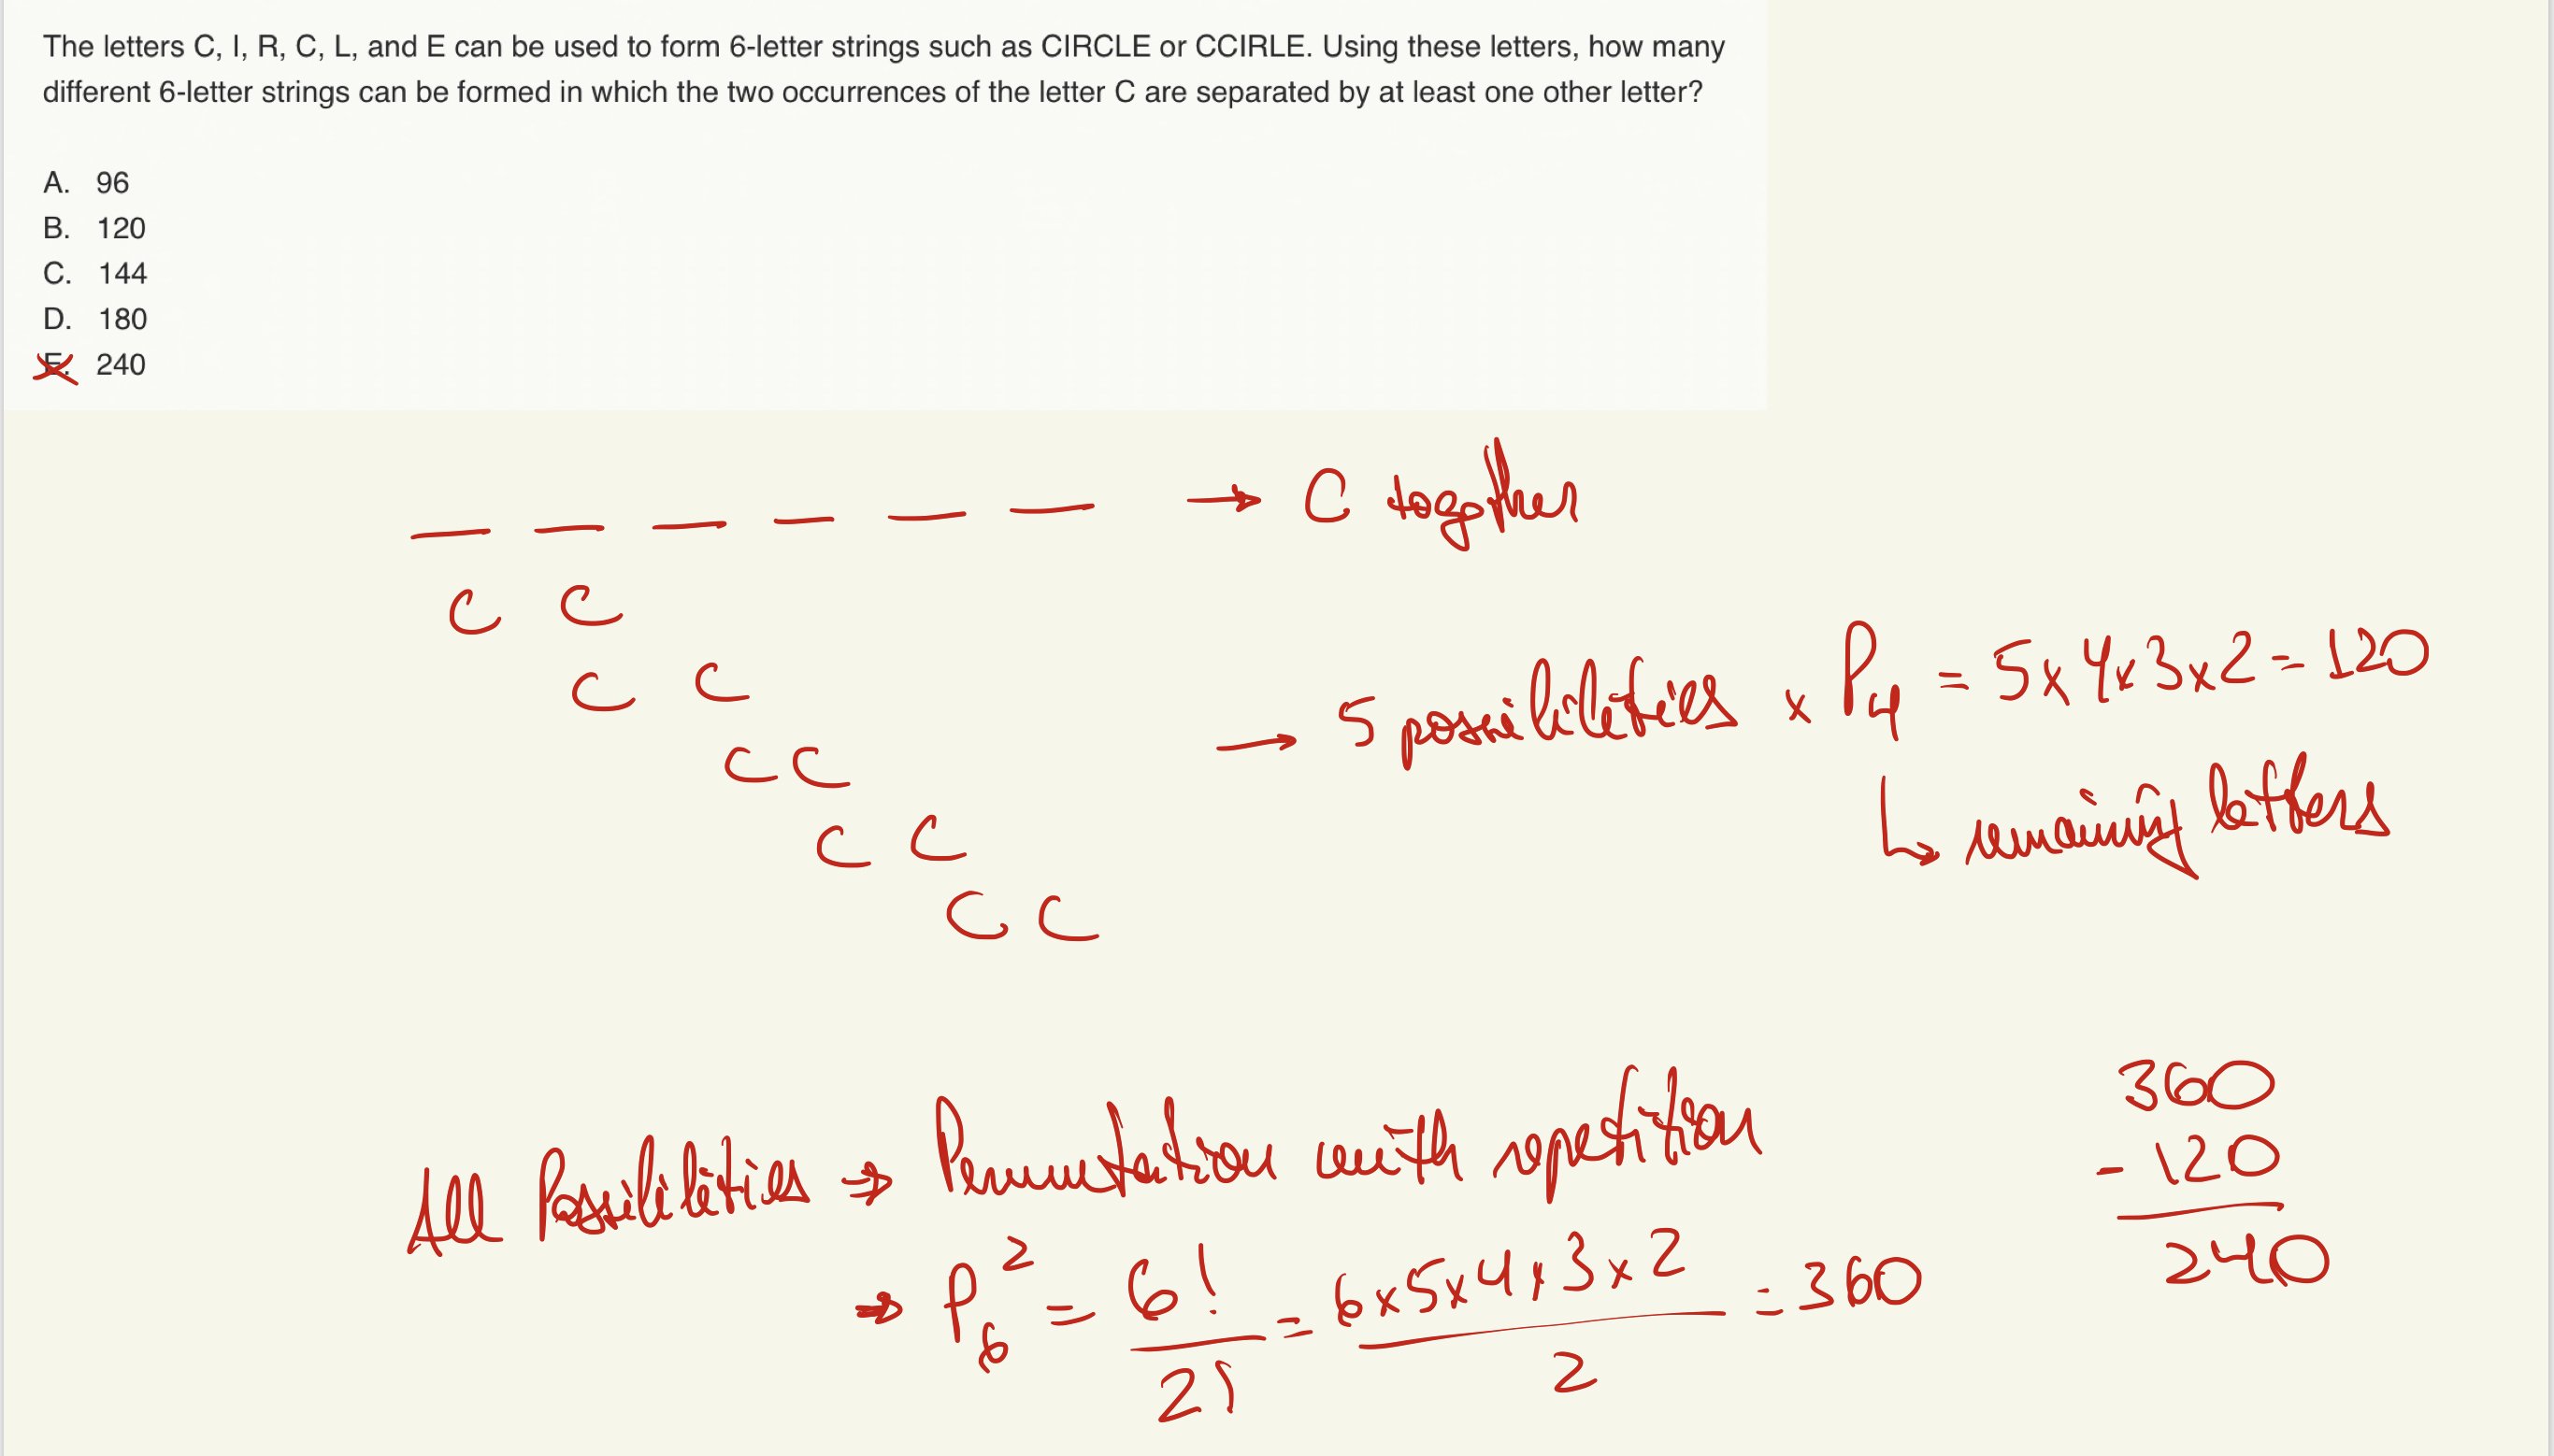 The letters C, I, R, C, L, and E can be used to form 6-letter strings such as CIRCLE or CCIRLE. Using these letters, how many
different 6-letter strings can be formed in which the two occurrences of the letter C are separated by at least one other letter?
A. 96
B. 120
C. 144
D. 180
E. 240
_ _ _ _ _ _ → C together
C C
C C
C C
C C
C C
→ 5 possibilities x P₄ = 5x4x3x2 = 120
↳ remaining letters
All Possibilities ⇒ Permutation with repetition
⇒ P₆² = 6!/2! = 6x5x4x3x2/2 = 360
360
- 120
240